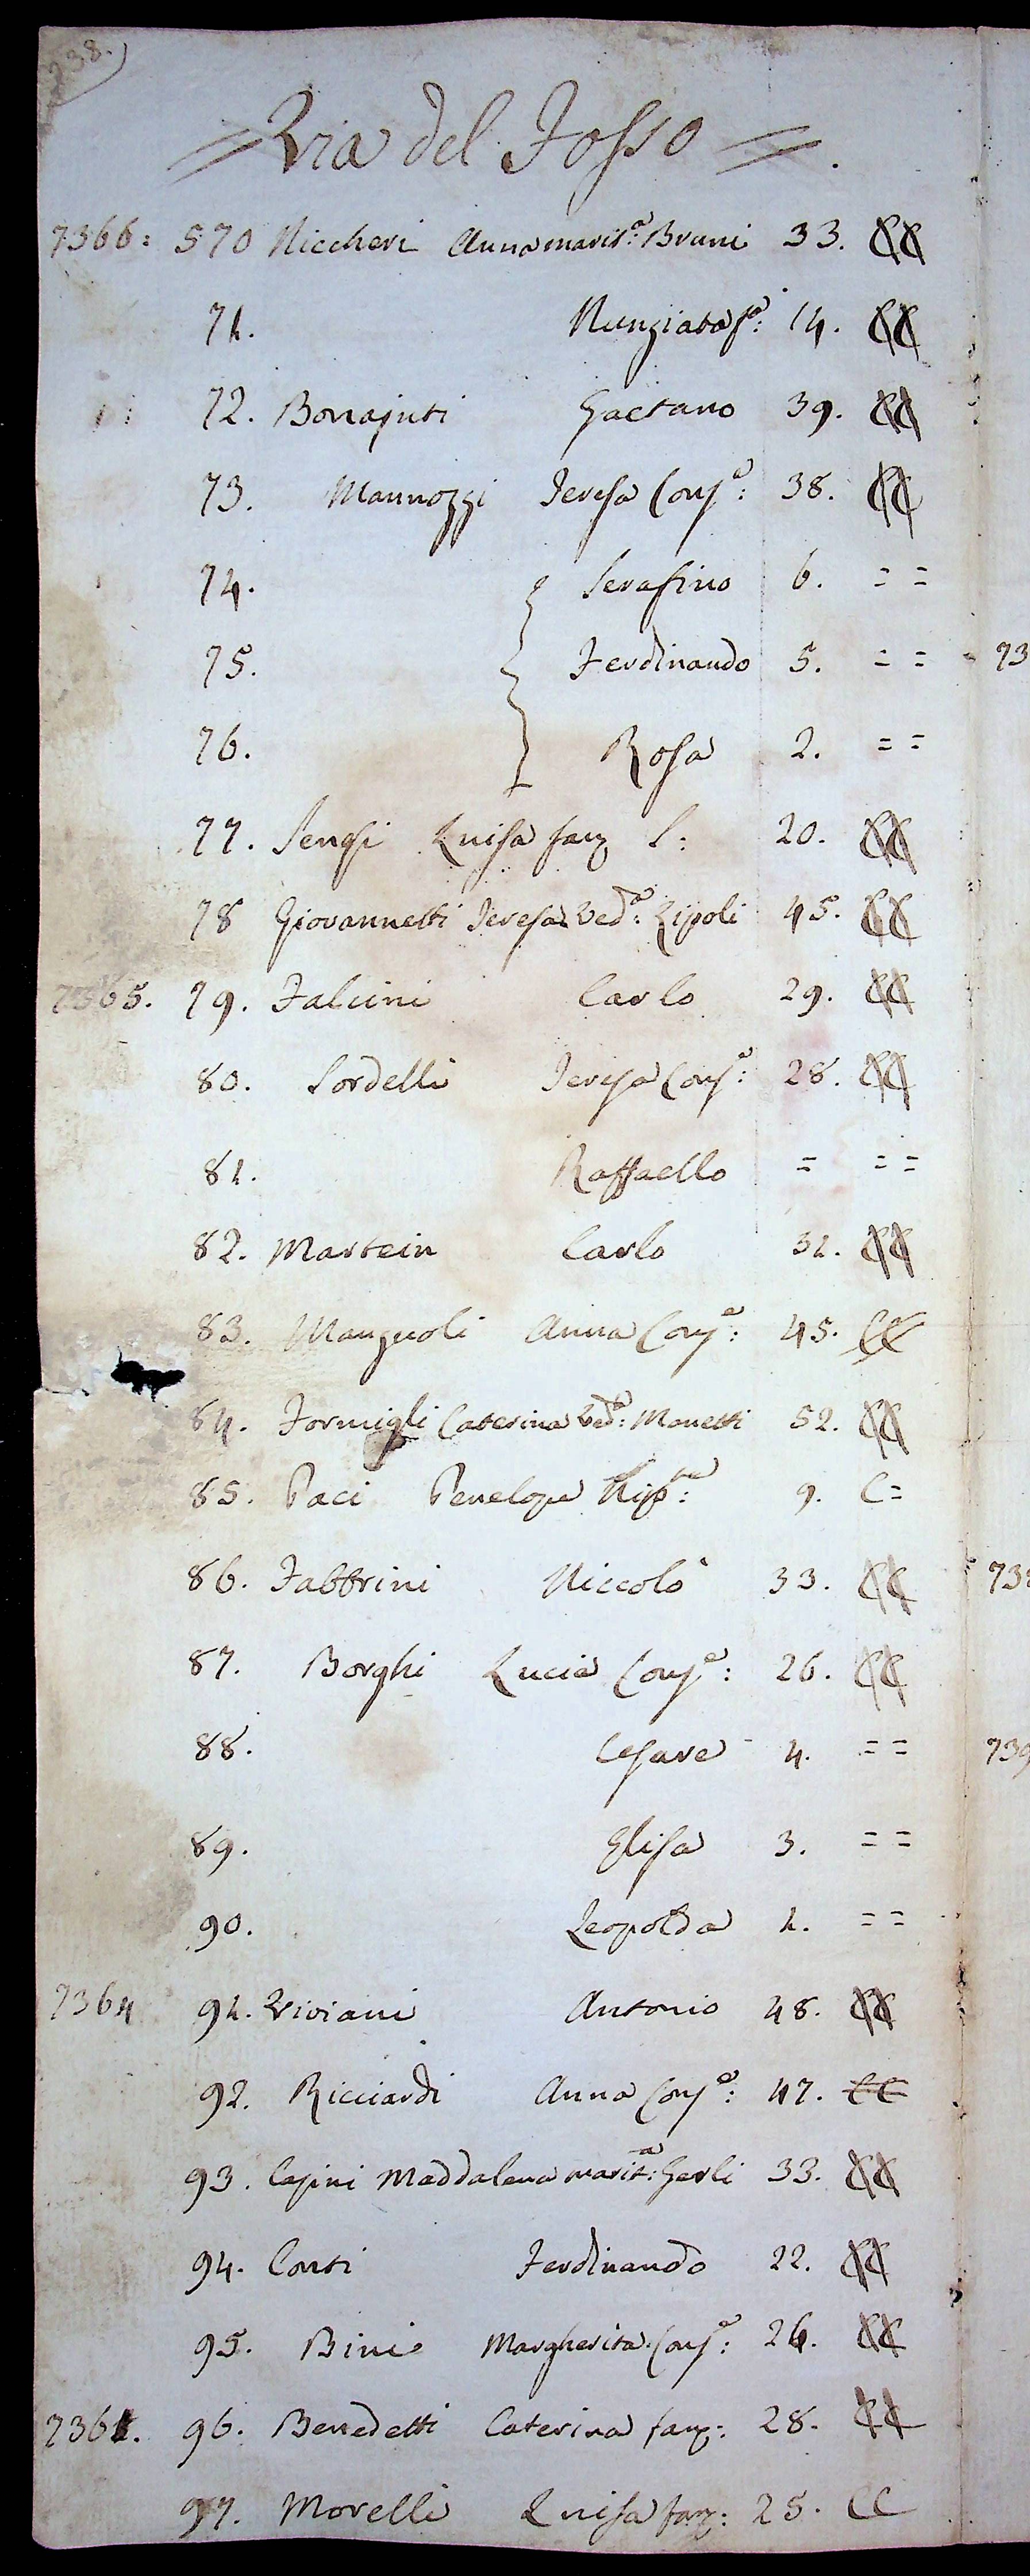 238.
= Via del Fosso =.
7366: 570 Niccheri Anna marit.ª Bruni 33. CC
71. Nunziata f.ª: 14. CC
72. Bonajuti Gaetano 39. CC
73. Mannozzi Teresa Conj.ª: 38. CC
74. Serafino 6. = =
75. Ferdinando 5. = = 73
76. Rosa 2. = =
77. Sengi Luisa fanz S: 20. CC
78 Giovannetti Teresa Ved.ª: Lipoli 45. CC
7365. 79. Falcini Carlo 29. CC
80. Sordelli Teresa Conj.ª: 28. CC
81. Raffaello = = =
82. Martein Carlo 31. CC
83. Manzuoli Anna Conj.ª: 45. CC
84. Formigli Caterina Ved.ª: Monetti 52. CC
85. Paci Penelope Nip.te: 9. C=
86. Fabbrini Niccolò 33. CC 738
87. Borghi Lucia Conj.ª: 26. CC
88. Cesare 4. = = 739
89. Elisa 3. = =
90. Leopolda 1. = =
7364 91. Viviani Antonio 48. CC
92. Ricciardi Anna Conj.ª: 47. CC
93. Capini Maddalena marit.ª: Gerli 33. CC
94. Conti Ferdinando 22. CC
95. Bini Margherita Conj.ª: 26. CC
7361. 96. Benedetti Caterina fanz: 28. CC
97. Morelli Luisa fanz: 25. CC